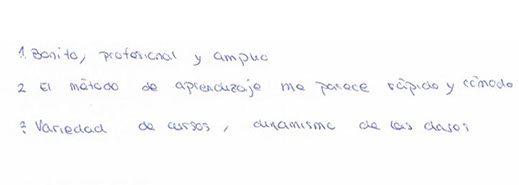 1. Bonito, profesional y amplio
2 El método de aprendizaje me parece rápido y cómodo
3 Variedad de cursos, dinamismo de las clases